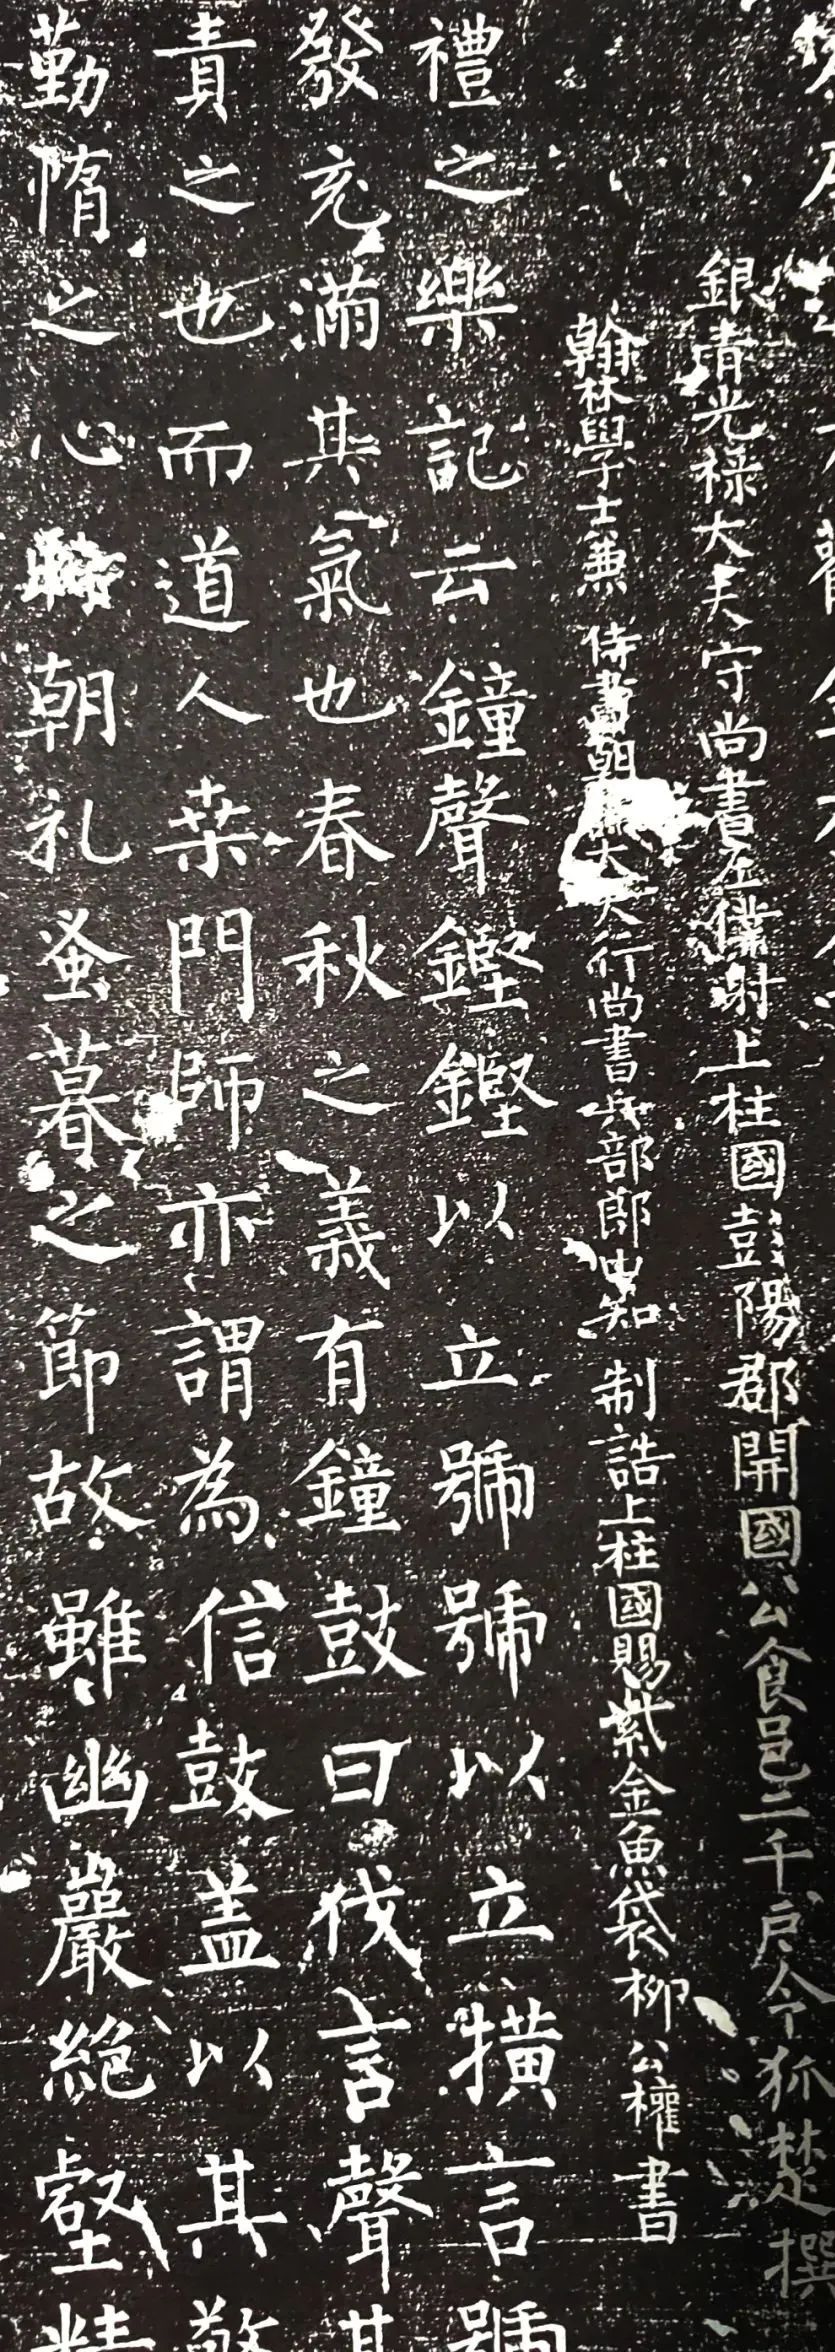 銀青光祿大夫守尚書左僕射上柱國彭陽郡開國公食邑二千戶令狐楚撰
翰林學士兼 侍書朝大夫行尚書兵部郎中知 制誥上柱國賜紫金魚袋柳公權書
禮之樂記云鐘聲鏗鏗以立號號以立撗言號
發充滿其氣也春秋之義有鐘鼓曰伐言聲其
責之也而道人桒門師亦謂為信鼓盖以其警
勤惰之心朝礼蚤暮之節故雖幽巖絕壑精